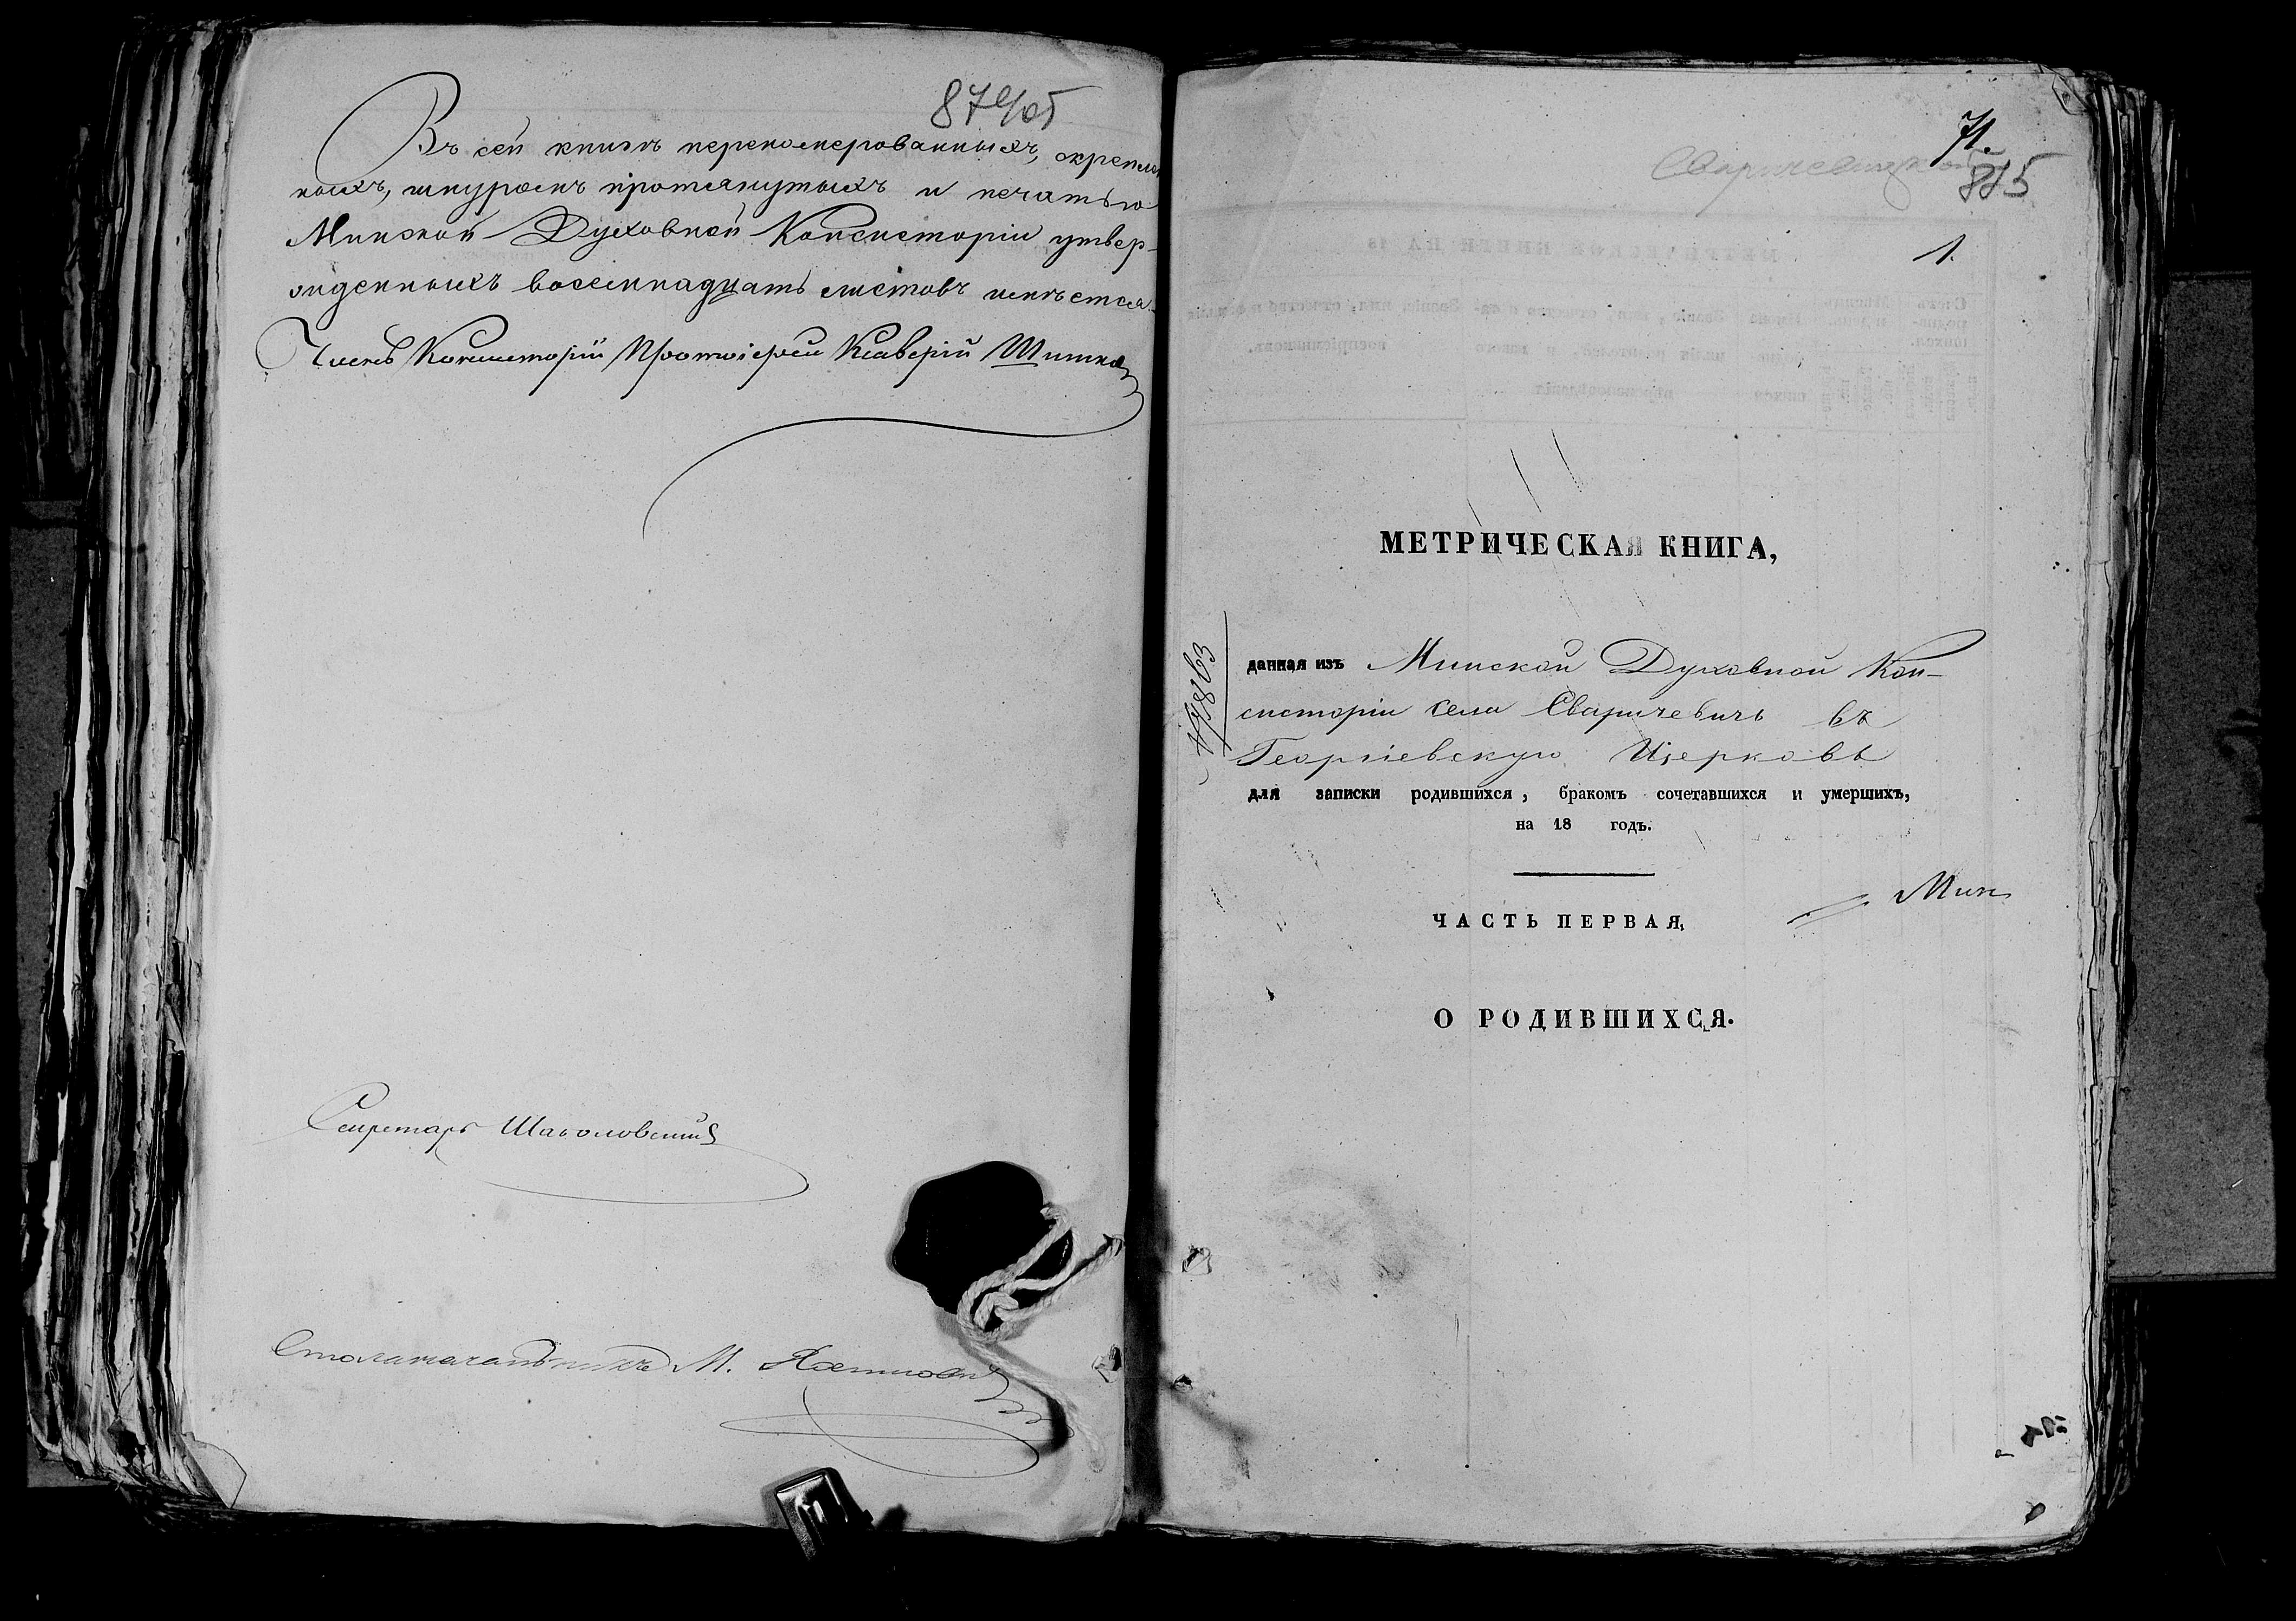 874об
Въ сей книгѣ переномерованныхъ, скреплен
ныхъ, шнуромъ протянутыхъ и печатью
Минской Духовной Консисторіи утвер-
жденныхъ восемнадцать листовъ имѣется.
Членъ Консисторіи Протоіерей Ксаверій
Секретарь
Столоначальникъ М.
71.
Сваричевичской
875
1.
МЕТРИЧЕСКАЯ КНИГА,
данная изъ Минской Духовной Кон-
систоріи села Сваричевичъ въ
Георгіевскую Церковь
для записки родившихся, бракомъ сочетавшихся и умершихъ,
на 18 годъ.
Мин
ЧАСТЬ ПЕРВАЯ,
О РОДИВШИХСЯ.